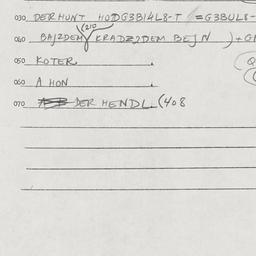 030 DER HUNT HODG3B14L8-T =G3BUL8-
(210
040 BAJZDEM KRADZ2DEM BEJN )+G
050 KOTER.
060 A HON
070 DER HENDL (408